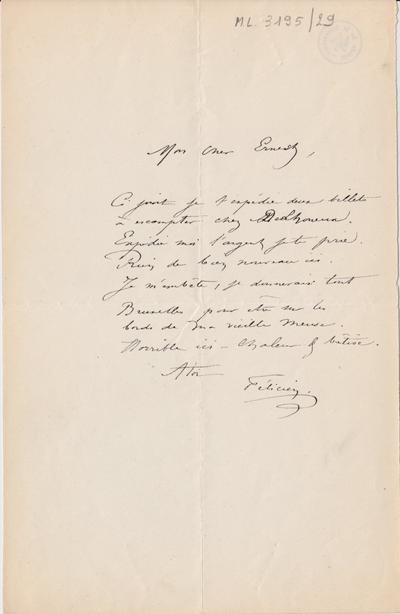 M.L. 3195/29
Mon cher Ernest,
Ci joint je t'expédie deux billets
à escompter chez
Expédie moi l'argent je te prie.
Rien de bien nouveau ici.
Je m'embête, je donnerais tout
Bruxelles pour être sur les
bords de ma vieille Meuse.
Horrible ici – chaleur & bêtise.
A toi
Félicien.